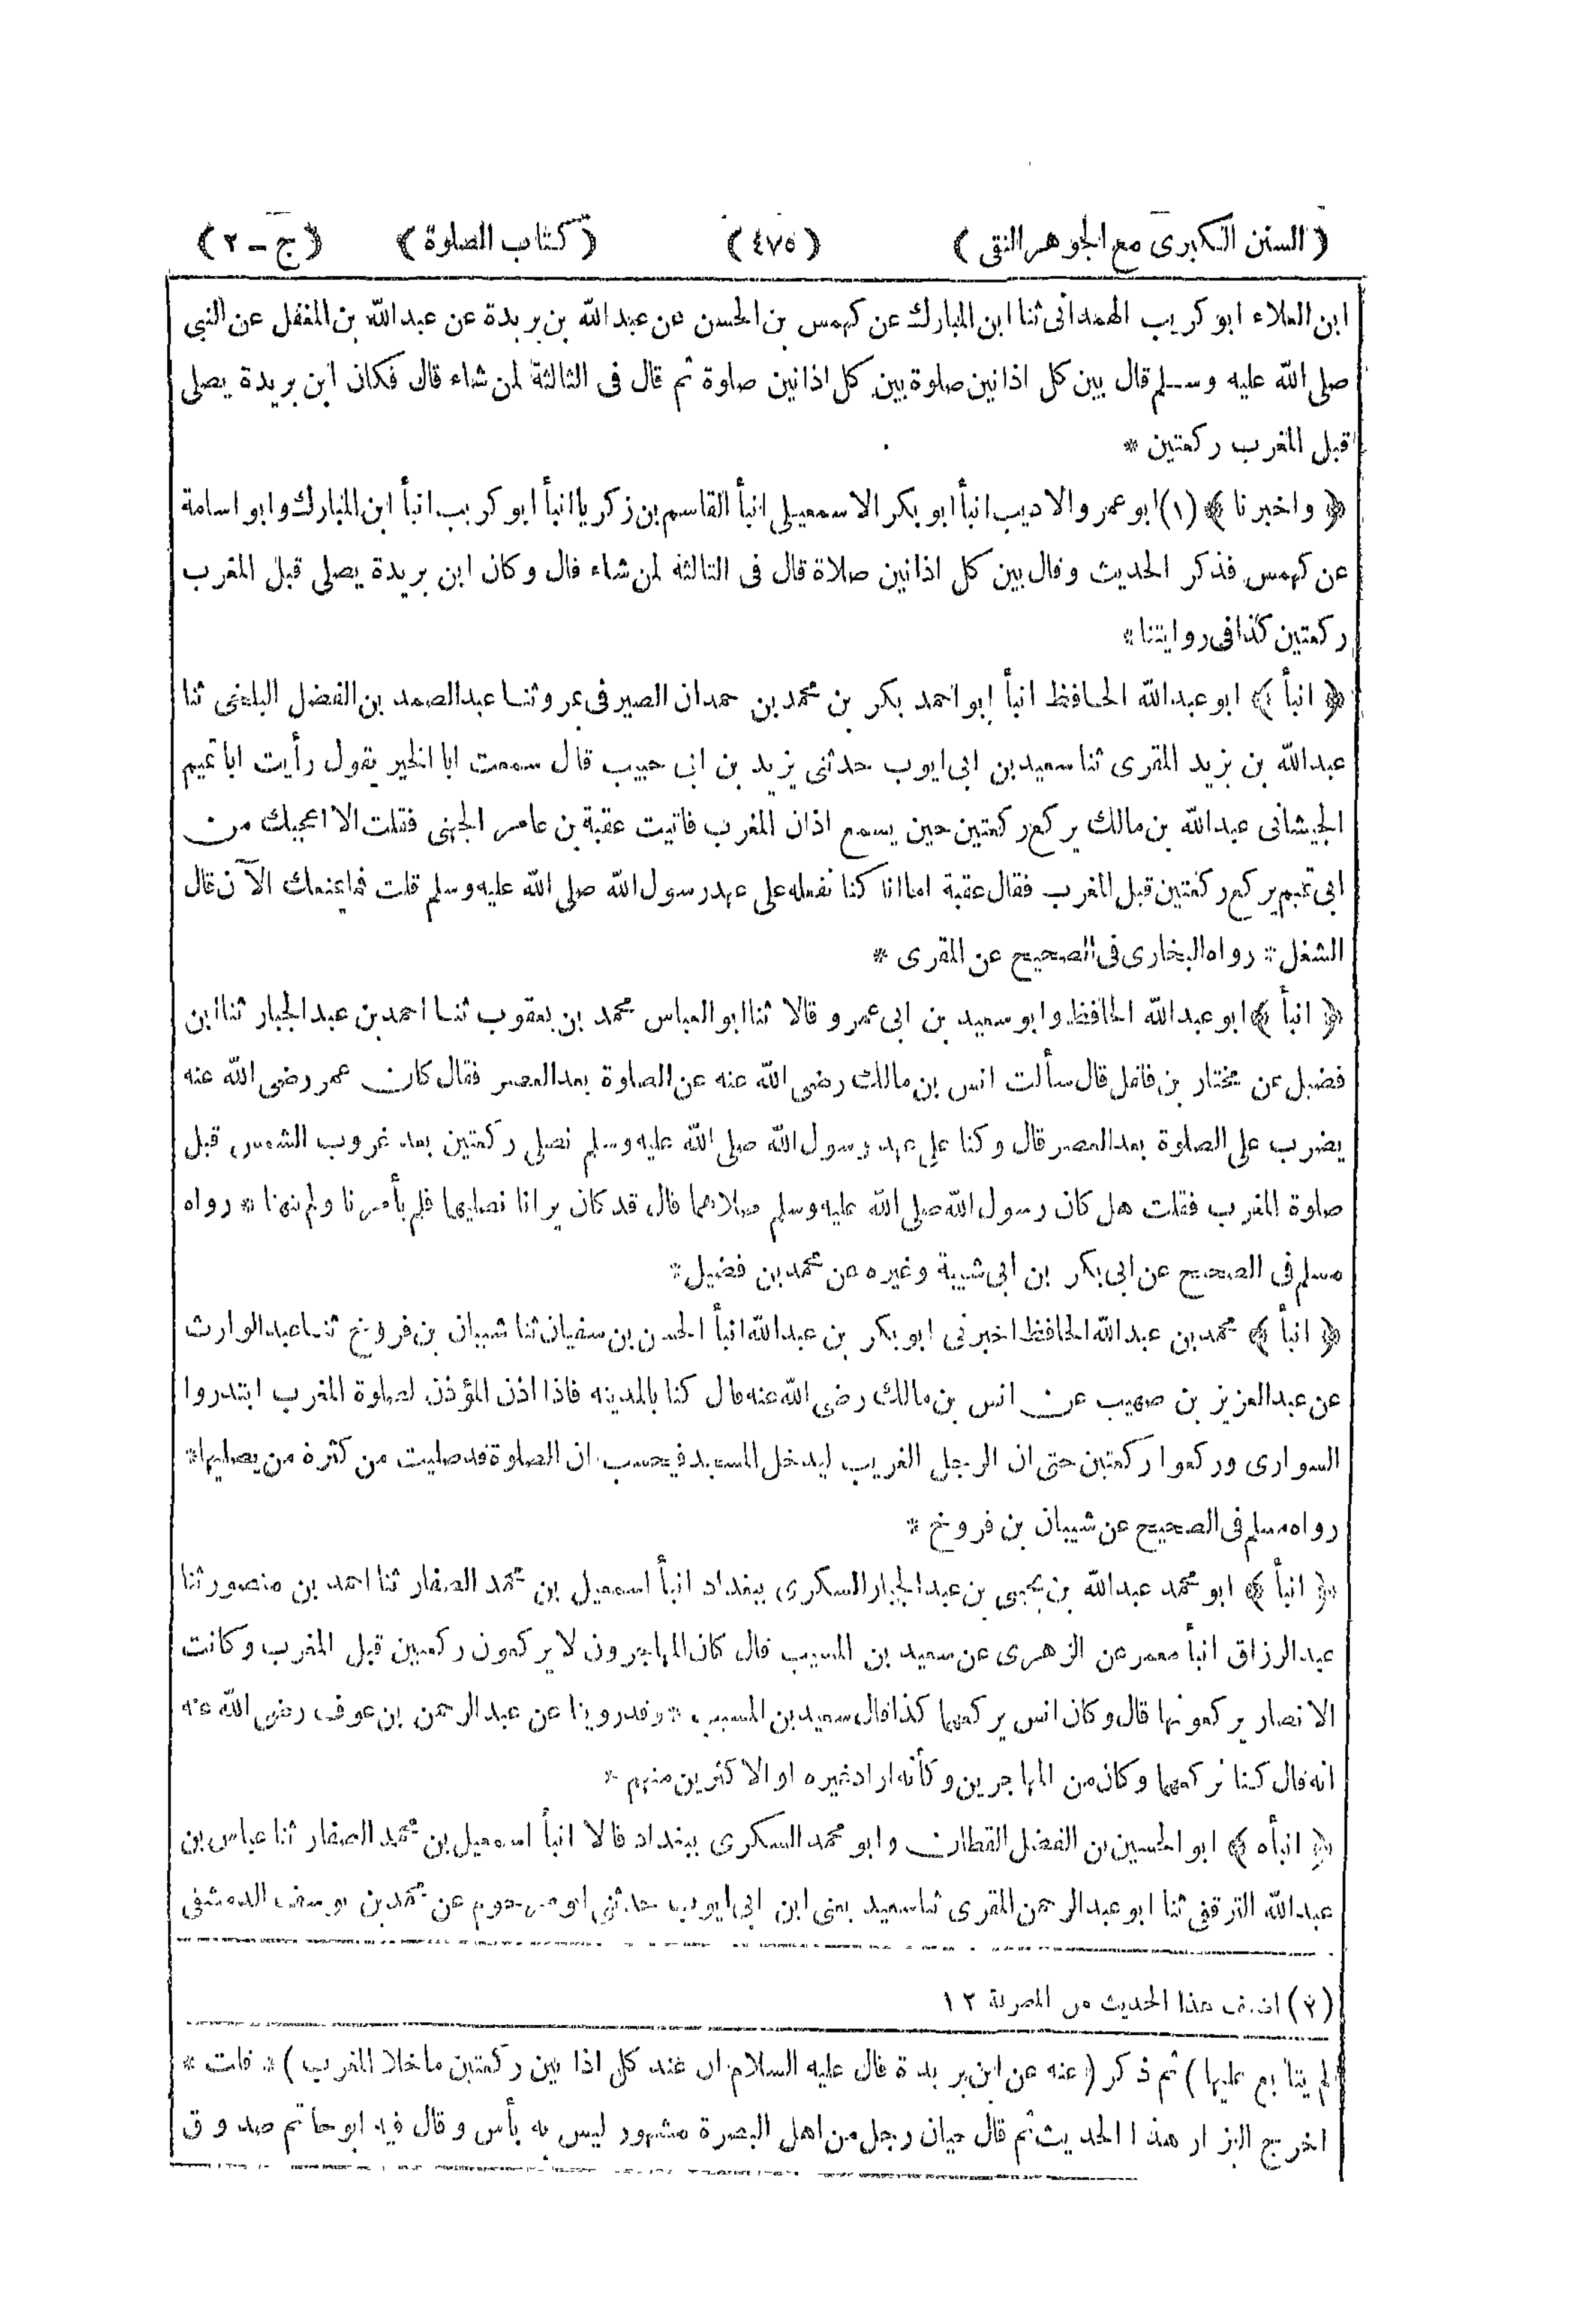 (السنن الكبرى مع الجوهر النقى) (٤٧٥) (كتاب الصلوة) (ج - ٢)
ابن العلاء ابو كريب الهمدانى ثنا ابن المبارك عن كهمس بن الحسن عن عبد الله بن بريدة عن عبد الله بن المغفل عن النبي
صلى الله عليه وسلم قال بين كل اذانين صلوة بين كل اذانين صلوة ثم قال فى الثالثة لمن شاء قال فكان ابن بريدة يصلى
قبل المغرب ركعتين *
﴿ واخبرنا ﴾ (١) ابو عمرو الاديب انبأ ابو بكر الاسمعيلى انبأ القاسم بن زكريا انبأ ابو كريب انبأ ابن المبارك وابو اسامة
عن كهمس فذكر الحديث وقال بين كل اذانين صلاة قال فى الثالثة لمن شاء قال وكان ابن بريدة يصلى قبل المغرب
ركعتين كذا فى روايتنا *
﴿ انبأ ﴾ ابو عبد الله الحافظ انبأ ابو احمد بكر بن محمد بن حمدان الصيرفى بمرو ثنا عبد الصمد بن الفضل البلخى ثنا
عبد الله بن يزيد المقرى ثنا سعيد بن ابى ايوب حدثنى يزيد بن ابى حبيب قال سمعت ابا الخير يقول رأيت ابا تميم
الجيشانى عبد الله بن مالك يركع ركعتين حين يسمع اذان المغرب فاتيت عقبة بن عامر الجهنى فقلت الا اعجبك من
ابى تميم يركع ركعتين قبل المغرب فقال عقبة اما انا كنا نفعله على عهد رسول الله صلى الله عليه وسلم قلت فما يمنعك الآن قال
الشغل * رواه البخارى فى الصحيح عن المقرى *
﴿ انبأ ﴾ ابو عبد الله الحافظ وابو سعيد بن ابى عمرو قالا ثنا ابو العباس محمد بن يعقوب ثنا احمد بن عبد الجبار ثنا ابن
فضيل عن مختار بن فلفل قال سألت انس بن مالك رضى الله عنه عن الصلوة بعد العصر فقال كان عمر رضى الله عنه
يضرب على الصلوة بعد العصر قال وكنا على عهد رسول الله صلى الله عليه وسلم نصلى ركعتين بعد غروب الشمس قبل
صلوة المغرب فقلت هل كان رسول الله صلى الله عليه وسلم صلاهما قال قد كان يرانا نصليها فلم يأمرنا ولم ينهنا * رواه
مسلم فى الصحيح عن ابى بكر بن ابى شيبة وغيره عن محمد بن فضيل *
﴿ انبأ ﴾ محمد بن عبد الله الحافظ اخبرنى ابو بكر بن عبد الله انبأ الحسن بن سفيان ثنا شيبان بن فروخ ثنا عبد الوارث
عن عبد العزيز بن صهيب عن انس بن مالك رضى الله عنه قال كنا بالمدينه فاذا اذن المؤذن لصلوة المغرب ابتدروا
السوارى وركعوا ركعتين حتى ان الرجل الغريب ليدخل المسجد فيحسب ان الصلوة قد صليت من كثرة من يصليها *
رواه مسلم فى الصحيح عن شيبان بن فروخ *
﴿ انبأ ﴾ ابو محمد عبد الله بن يحيى بن عبد الجبار السكرى ببغداد انبأ اسمعيل بن محمد الصفار ثنا احمد بن منصور ثنا
عبد الرزاق انبأ معمر عن الزهرى عن سعيد بن المسيب قال كان المهاجرون لا يركعون ركعتين قبل المغرب وكانت
الانصار يركعونها قال وكان انس يركعهما كذا قال سعيد بن المسيب * وقد روينا عن عبد الرحمن بن عوف رضى الله عنه
انه قال كنا نركعهما وكان من المهاجرين وكأنه اراد غيره او الاكثرين منهم *
﴿ انبأه ﴾ ابو الحسين بن الفضل القطان وابو محمد السكرى ببغداد قالا انبأ اسمعيل بن محمد الصفار ثنا عباس بن
عبد الله الترقفى ثنا ابو عبد الرحمن المقرى ثنا سعيد يعنى ابن ابى ايوب حدثنى ابو مرحوم عن محمد بن يوسف الدمشقى
هذا الحديث من المصرية ١٢
لم يتابع عليها) ثم ذكر (عنه عن ابن بريدة قال عليه السلام ان عند كل اذانين ركعتين ما خلا المغرب) * قلت *
اخرج البزار هذا الحديث ثم قال حيان رجل من اهل البصرة مشهور ليس به بأس وقال فيه ابو حاتم صدوق